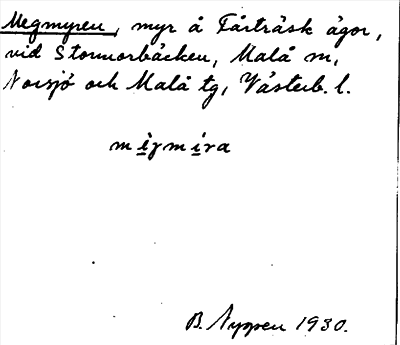 Megmyren, myr å Fårträsk ägor,
vid Stormorbäcken, Malå m,
Norsjö och Malå tg, Västerb. l.
mi̲ɡmi̲ra
B. Nygren 1930.